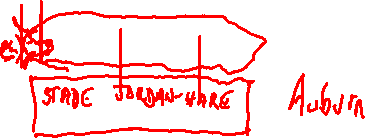 STADE JORDAN-HARE
Auburn